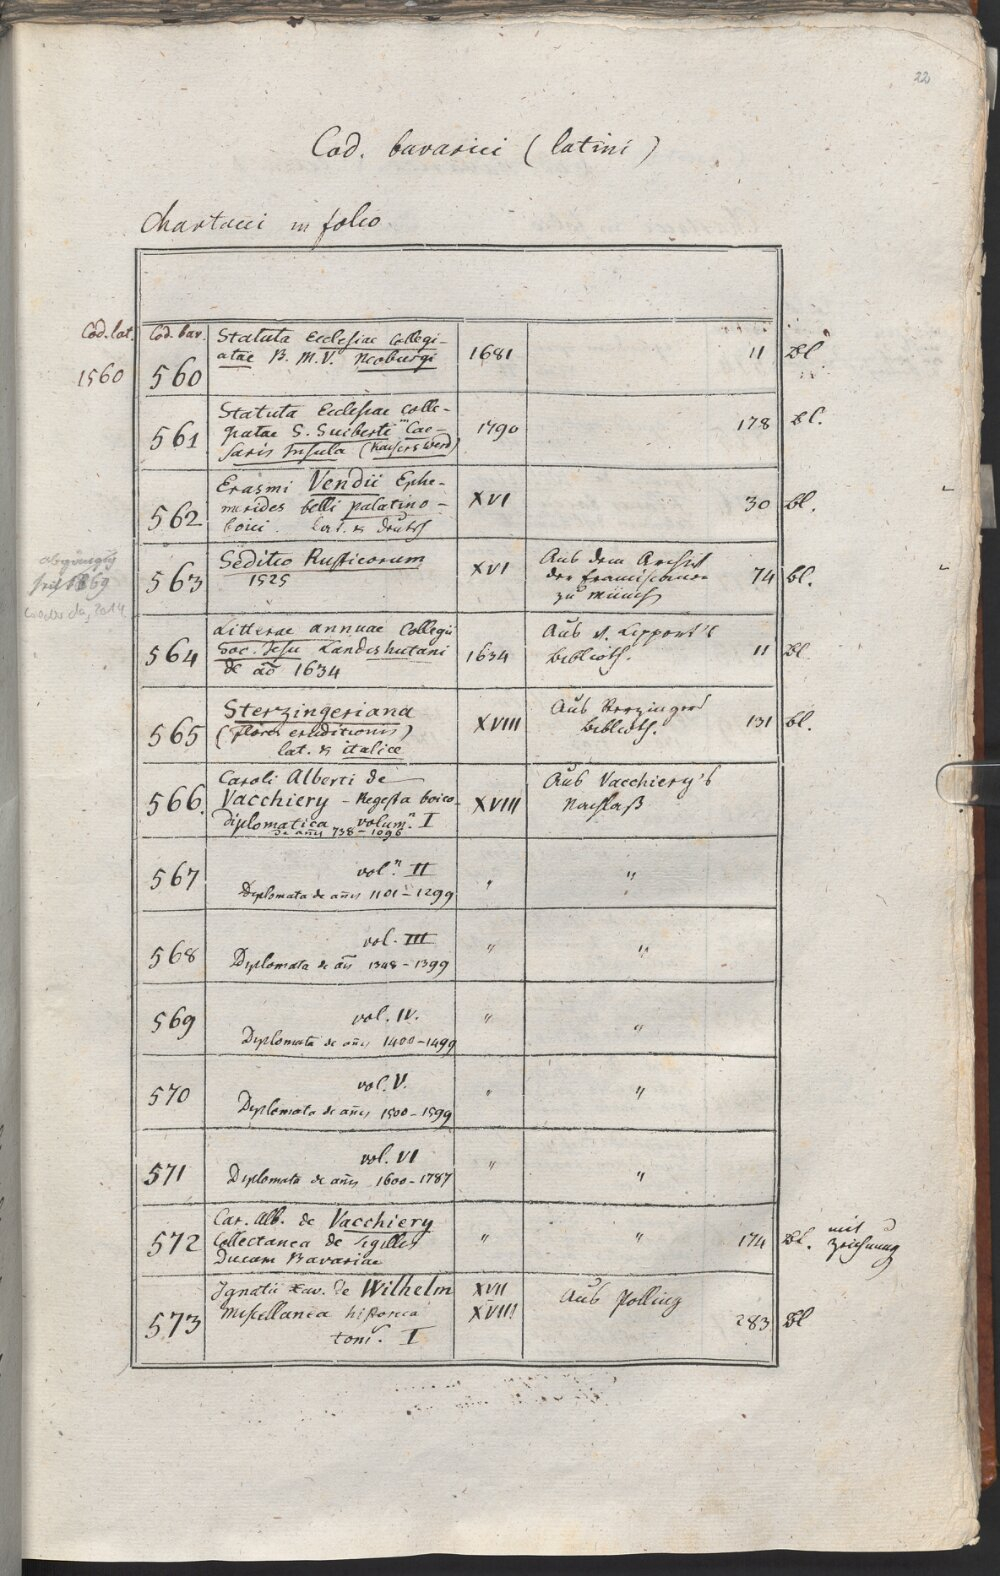 22
Cod. bavarici (latini)
Chartacei in folio
Cod. lat. Cod. bav.
1560 560 Statuta Ecclesiae Collegi-
atae B. M. V. Neoburgi 1681 11 Bl
561 Statuta Ecclesiae colle-
giatae S. Suiberti Cae-
saris Insula (Kaiserswerd) 1790 178 Bl.
562 Erasmi Vendii Ephe-
merides belli palatino-
boici. Lat. & deutsch XVI 30 Bl.
abgängig
seit 1869
563 Seditio Rusticorum
1525 XVI Aus dem Archiv
der Franciscaner
zu München 74 Bl.
564 Litterae annuae Collegii
Soc. Jesu Landeshutani
de aõ 1634 1634 Aus v. Lippert's
Biblioth. 11 Bl.
565 Sterzingeriana
(flores eruditionis)
lat. & italice XVIII Aus
Biblioth. 131 Bl.
566. Caroli Alberti de
Vacchiery – Regesta boico-
diplomatica volumⁿ. I
de añis 738–1096 XVIII Aus Vacchiery's
Nachlaß
567 volⁿ. II
Diplomata de añis 1101–1299 " "
568 vol. III
Diplomata de añ 1348–1399 " "
569 vol. IV.
Diplomata de añis 1400–1499 " "
570 vol. V.
Diplomata de añis 1500–1599 " "
571 vol. VI
Diplomata de añis 1600–1787 " "
572 Car. Alb. de Vacchiery
Collectanea de sigillis
Ducum Bavariae " " 174 Bl. mit
Zeichnung
573 Ignatii Xav. de Wilhelm
Miscellanea historica
tomⁱ. I XVII
XVIII Aus Polling 283 Bl